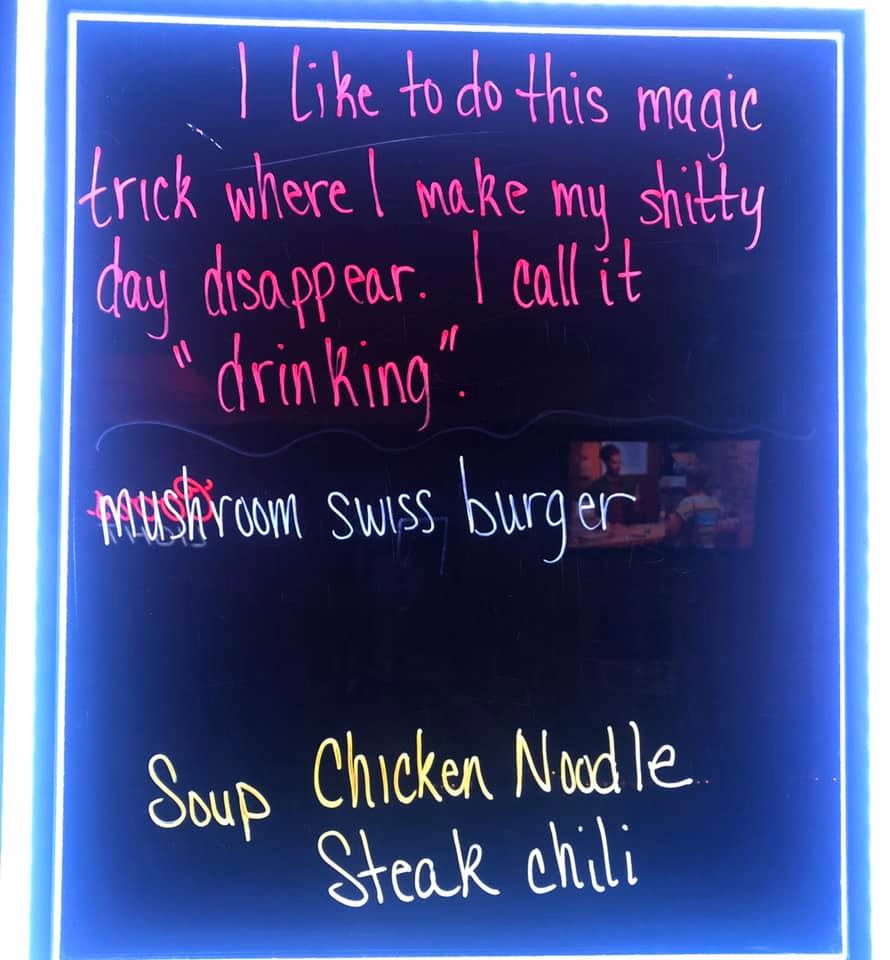 I Like to do this magic
trick where I make my shitty
day disappear. I call it
"drinking".
mushroom swiss burger
Soup Chicken Noodle
Steak chili